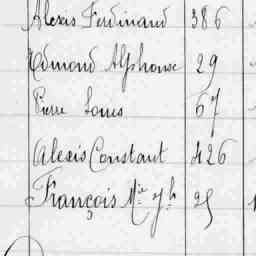 Alexis Ferdinand 386
Edmond Alphonse 29
Pierre Louis 67
Alexis Constant 426
François M.ie J.h 25